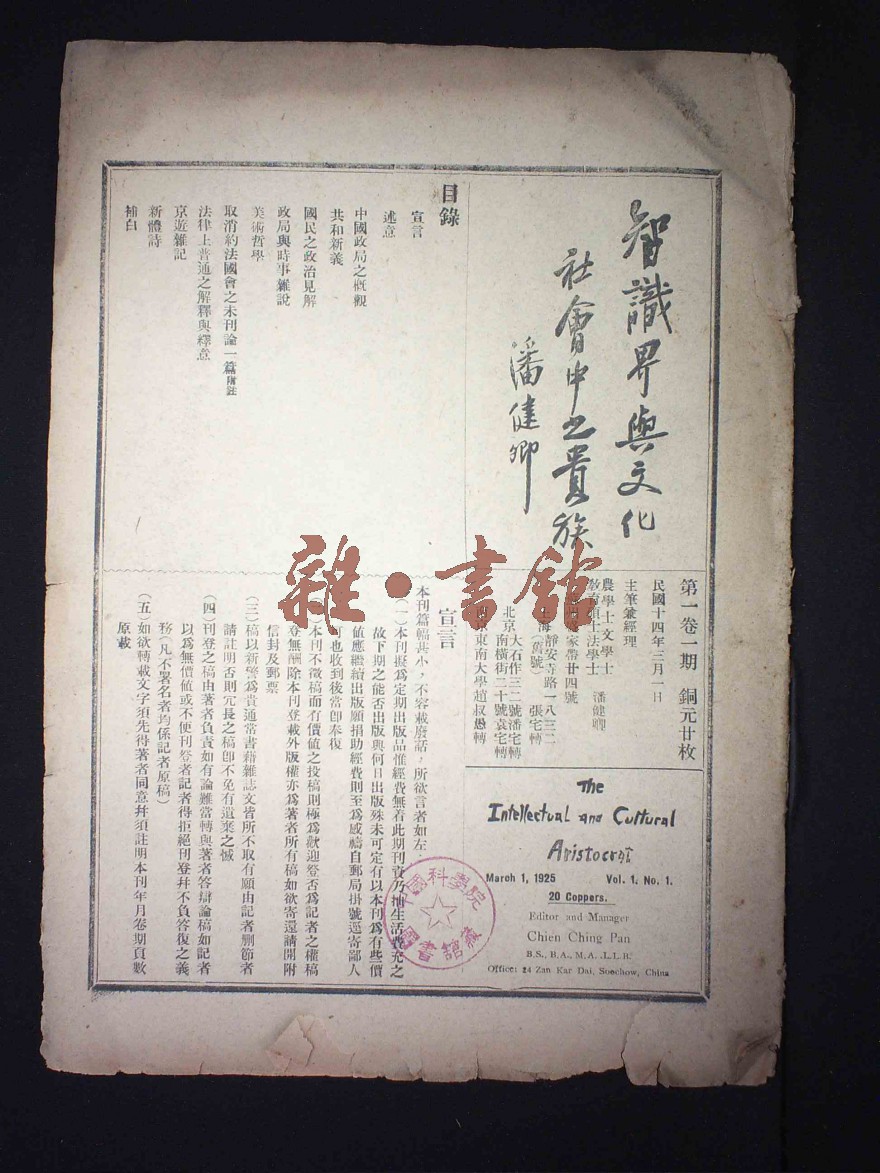 智識界與文化
社會中之貴族
潘健卿
第一卷一期 銅元廿枚
民國十四年三月一日
主筆兼經理
農學士文學士
教育碩士法學士 潘健卿
家帶廿四號
上海靜安寺路一八三二
(舊號) 張宅轉
北京大石作三二號潘宅轉
南橫街二十號袁宅轉
南京東南大學趙叔愚轉
The
Intellectual and Cultural
Aristocrat
March 1, 1925 Vol. 1. No. 1.
20 Coppers.
Editor and Manager
Chien Ching Pan
B.S., B.A., M.A., L.L.B.
Office: 24 Zan Kar Dai, Soochow, China
目錄
宣言
述意
中國政局之概觀
共和新義
國民之政治見解
政局與時事雜說
美術哲學
取消約法國會之未刊論一篇附註
法律上普通之解釋與釋意
京遊雜記
新體詩
補白
宣言
本刊篇幅甚小,不容載廢話,所欲言者如左
(一)本刊擬爲定期出版品惟經費無着此期刊資乃抽生活費充之
故下期之能否出版與何日出版殊未可定有以本刊爲有些價
值應繼續出版願捐助經費則至爲感禱自郵局掛號逕寄鄙人
可也收到後當卽奉復
本刊不徵稿而有價值之投稿則極爲歡迎登否爲記者之權稿
登無酬除本刊登載外版權亦爲著者所有稿如欲寄還請開附
信封及郵票
(三)稿以新警爲貴通常書籍雜誌文皆所不取有願由記者删節者
請註明否則冗長之稿卽不免有遺棄之憾
(四)刊登之稿由著者負責如有論難當轉與著者答辯論稿如記者
以爲無價値或不便刊登者記者得拒絕刊登幷不負答復之義
務(凡不署名者均係記者原稿)
(五)如欲轉載文字須先得著者同意幷須註明本刊年月卷期頁數
原載
中國科學院
圖書館藏
雜·書館